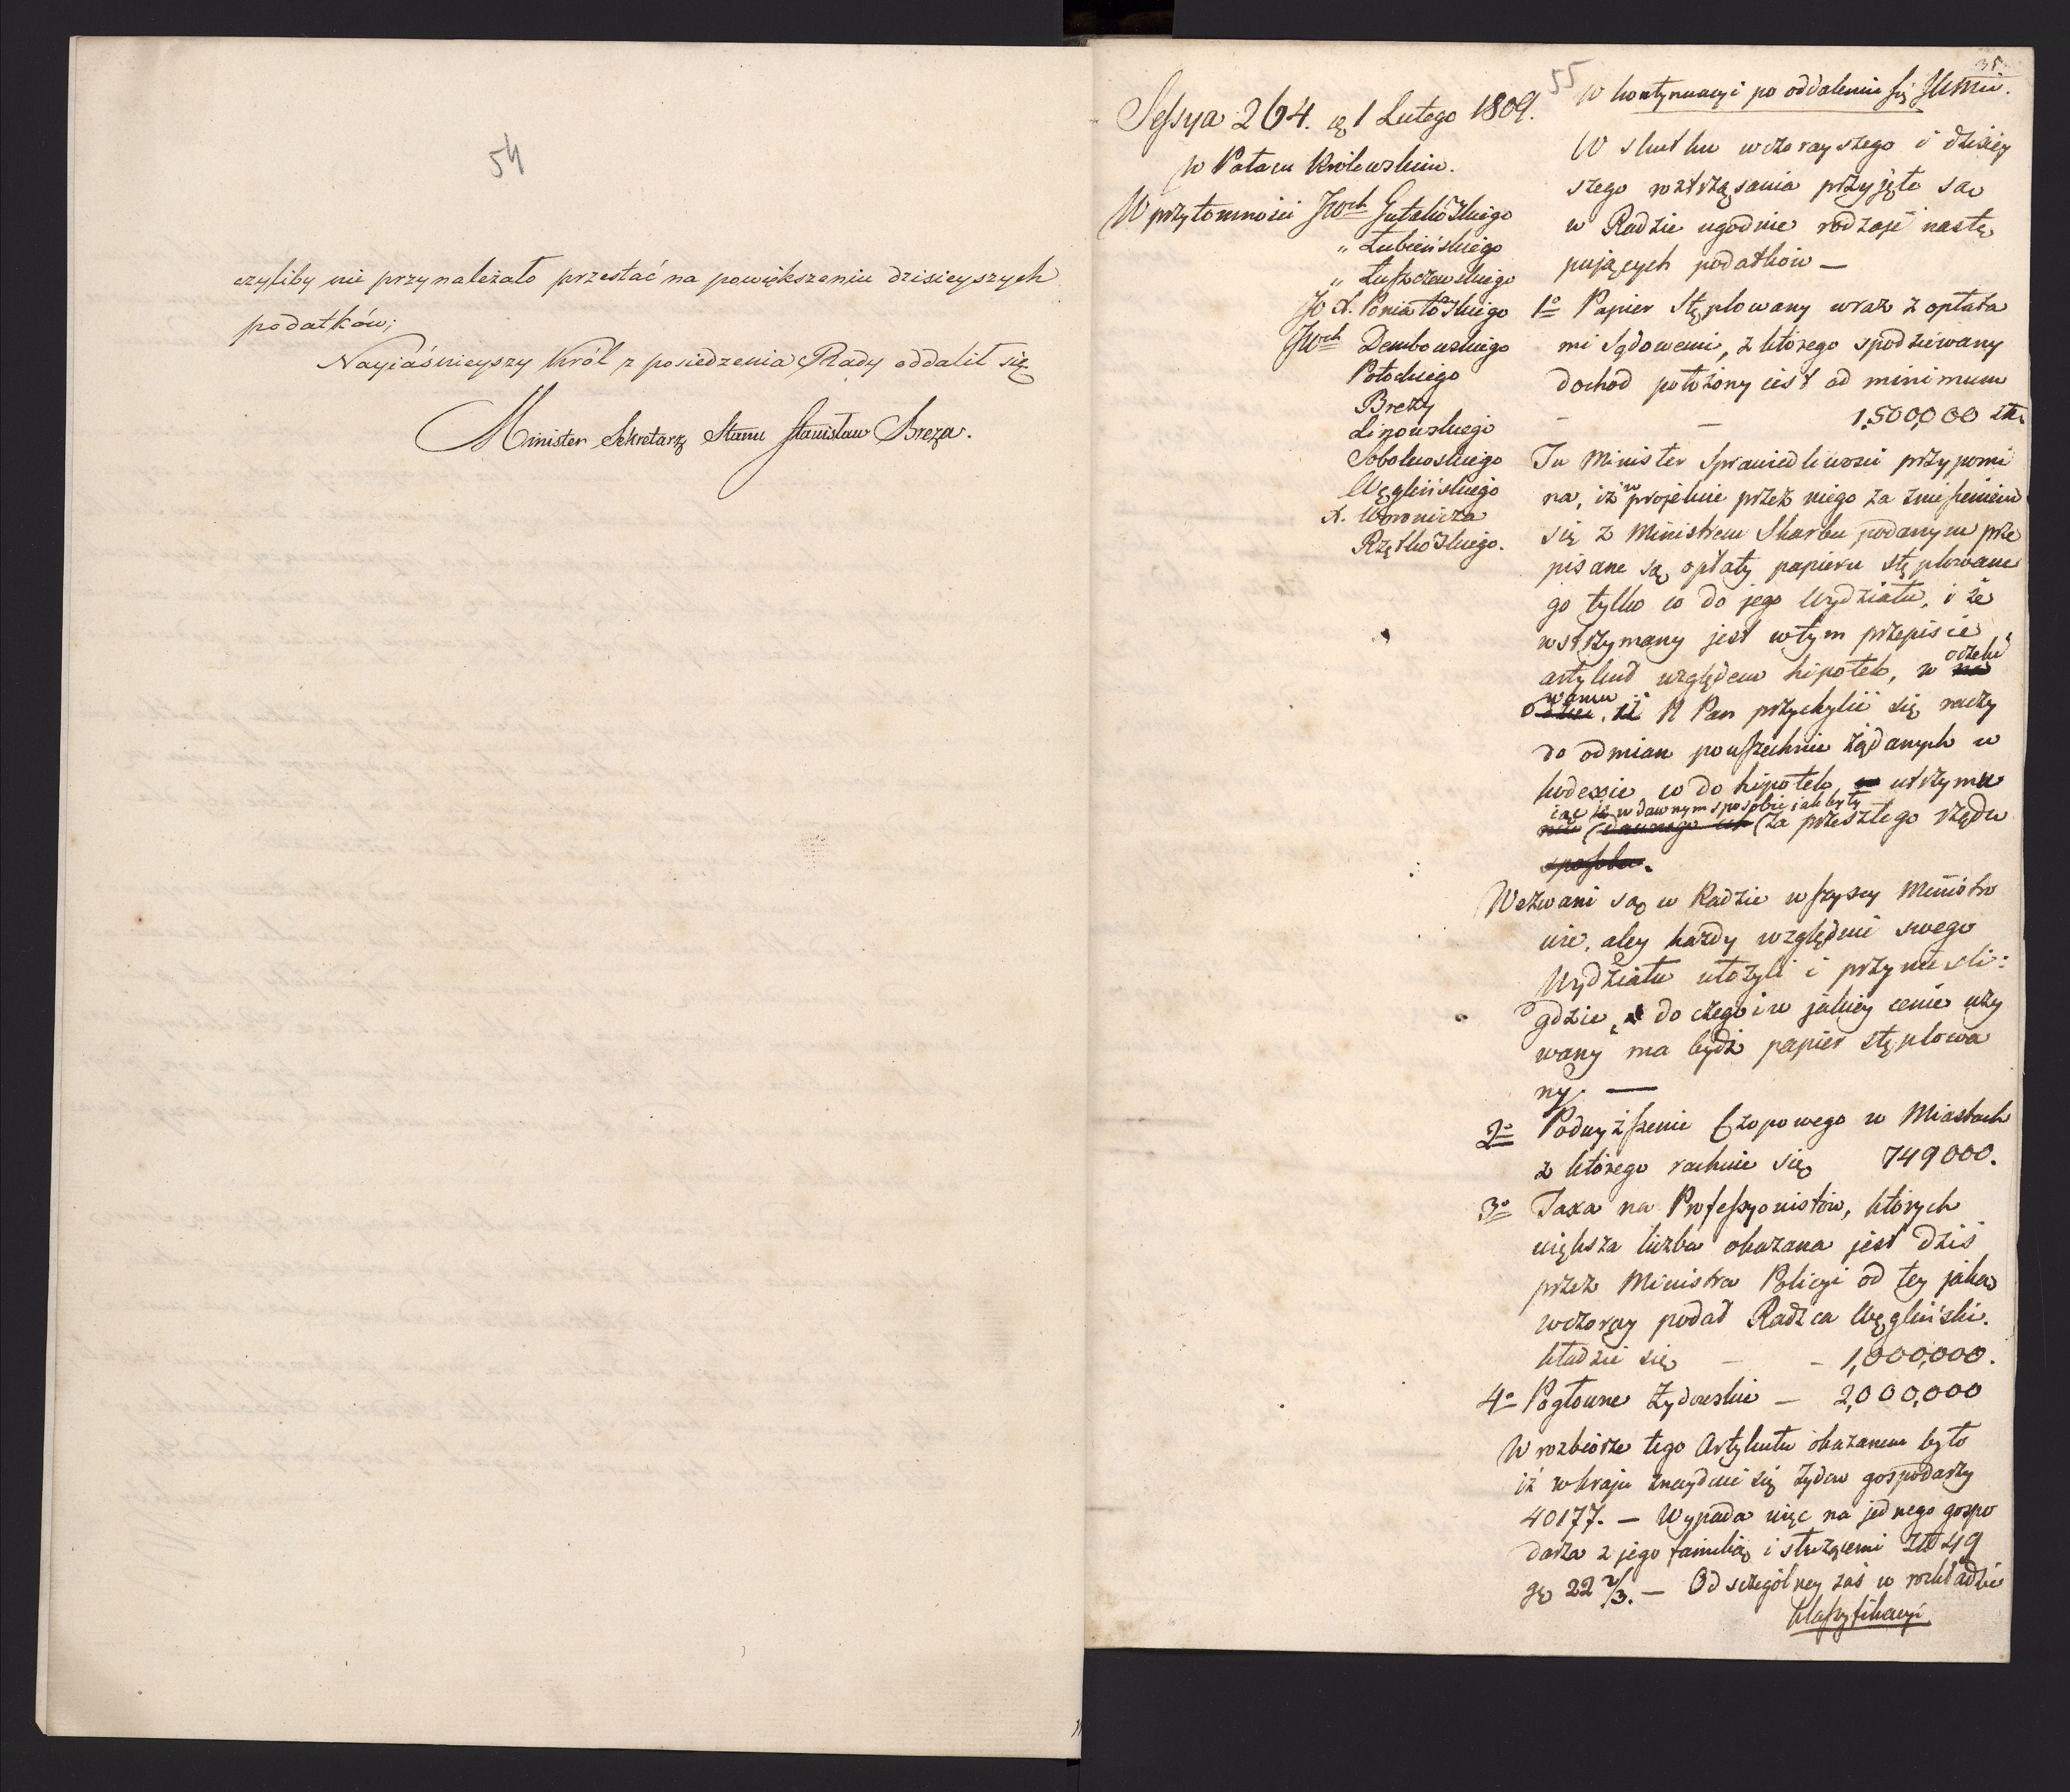 54
czyliby nie przynależało przestać na powiększeniu dzisieyszych
podatków;
Nayiaśnieyszy Król z posiedzenia Rady oddalił się.
Minister Sekretarz Stanu Stanisław Breza.
55
35
Sessya 264. d. 1 Lutego 1809.
w Pałacu Królewskim.
W przytomności JWch Gutakowskiego
" Łubieńskiego
" Łuszczewskiego
JO X. Poniatowskiego
JWch Dembowskiego
Potockiego
Brezy
Linowskiego
Sobolewskiego
Węglińskiego
X. Woronicza
Rzętkowskiego.
W kontynuacyi po oddaleniu się
W skutku wczorayszego i dzisiey
szego roztrząsania przyjęte są
w Radzie ugodnie rodzaje nastę
pujących podatków —
1o Papier Stęplowany wraz z opłata
mi sądowemi, z którego spodziewany
dochod położony jest ad minimum
— — 1,500,000 złł.
Tu Minister Sprawiedliwości przypomi
na, iż w projekcie przez niego za zniesieniem
się z Ministrem Skarbu podanym prze
pisane są opłaty papieru stęplowane
go tylko co do jego Wydziału, i że
wstrzymany jest w tym przepisie
artykuł względem hipotek, w oczeki
waniu, iż N Pan przychylić się raczy
do odmian powszechnie żądanych w
kodexie co do hipotek utrzymu
iąc je w dawnym sposobie jak były
za przeszłego rządu
sposobu.
Wezwani są w Radzie wszyscy Ministro
wie, aby każdy względnie swego
Wydziału ułożyli i przynieśli:
gdzie, do czego i w jakiey cenie uży
wany ma bydź papier stęplowa
ny. —
2o Podwyższenie Czopowego w Miastach
z którego rachuie się 749000.
3o Taxa na Professyonistów, których
większa liczba okazana jest dziś
przez Ministra Policyi od tey jaką
wczoray podał Radzca Węgliński.
kładzie się — — 1,000,000.
4o Pogłowne Żydowskie — 2,000,000
W rozbiorze tego Artykułu okazanem było
iż w kraju znayduie się Żydów gospodarzy
40177. — Wypada więc na jednego gospo
darza z jego familią i służącemi złł 49
gr 22 2/3. — Od szczególney zaś w rozkładzie
klassyfikacyi